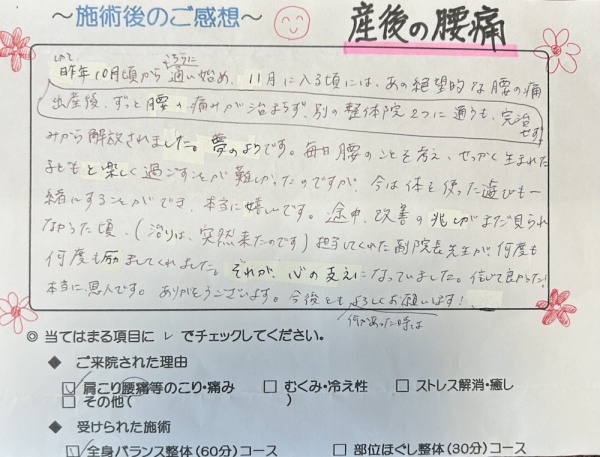 ～施術後のご感想～
産後の腰痛
そちらに
昨年10月頃から通い始め、11月に入る頃には、あの絶望的な腰の痛
出産後、ずっと腰の痛みが治まらず、別の整体院2つに通うも、完治せず
みから解放されました。夢のようです。毎日腰のことを考え、せっかく生まれた
子どもと楽しく過ごすことが難しかったのですが、今は体を使った遊びも一
緒にすることができ、本当に嬉しいです。途中、改善の兆しがまだ見られ
なかった頃、(治りは、突然来たのです)担当してくれた副院長先生が、何度も
何度も励ましてくれました。それが、心の支えになっていました。信じて良かった!
本当に恩人です。ありがとうございます。今後ともよろしくお願いします!
何かあった時は
◎ 当てはまる項目に レ でチェックしてください。
◆ ご来院された理由
☑ 肩こり腰痛等のこり・痛み □ むくみ・冷え性 □ ストレス解消・癒し
□ その他( )
◆ 受けられた施術
☑ 全身バランス整体(60分)コース □ 部位ほぐし整体(30分)コース